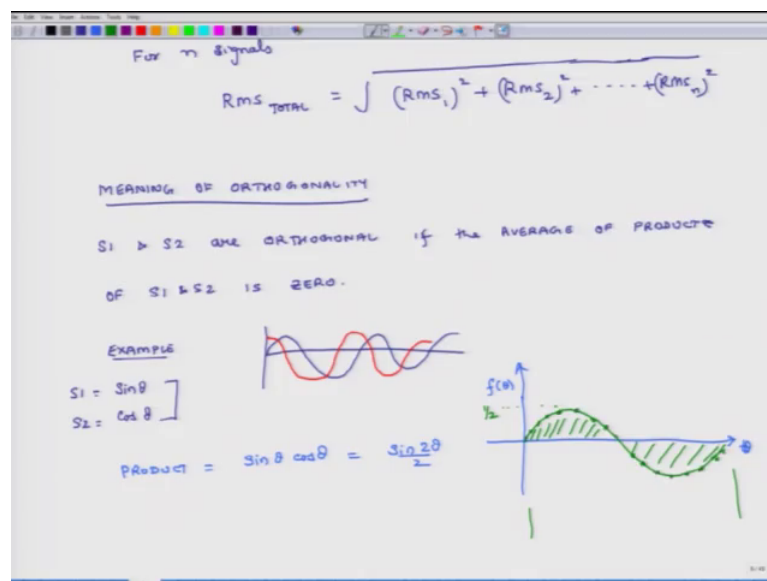 File Edit View Insert Actions Tools Help
For n signals
Rms TOTAL = √ (Rms₁)² + (Rms₂)² + ----- + (Rmsₙ)²
MEANING OF ORTHOGONALITY
S1 & S2 are ORTHOGONAL if the AVERAGE OF PRODUCTS
OF S1 & S2 IS ZERO.
EXAMPLE
S1 = Sinθ
S2 = Cosθ
PRODUCT = Sinθ cosθ = Sin2θ/2
f(θ)
1/2
θ